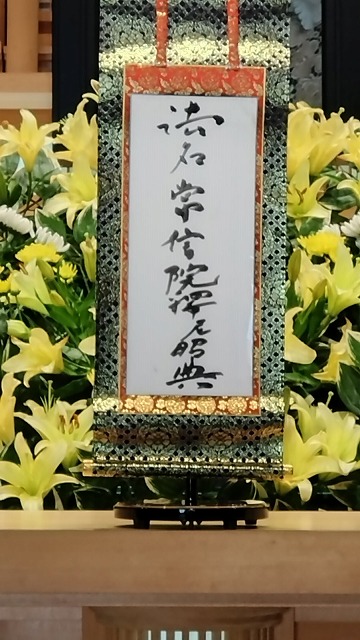 法名常信院釋尼昭典